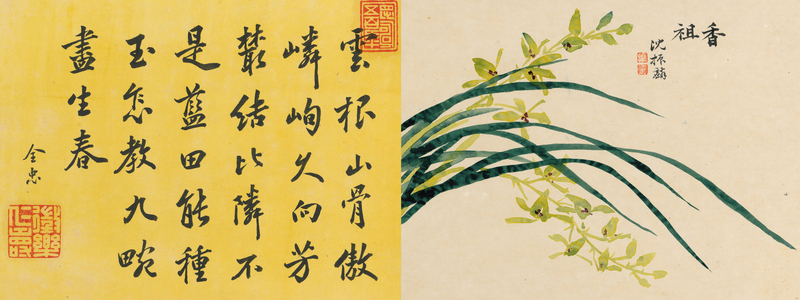 香祖
沈振麟
雲根山骨傲
嶙峋久向芳
叢結比隣不
是藍田能種
玉怎教九畹
盡生春
全忠